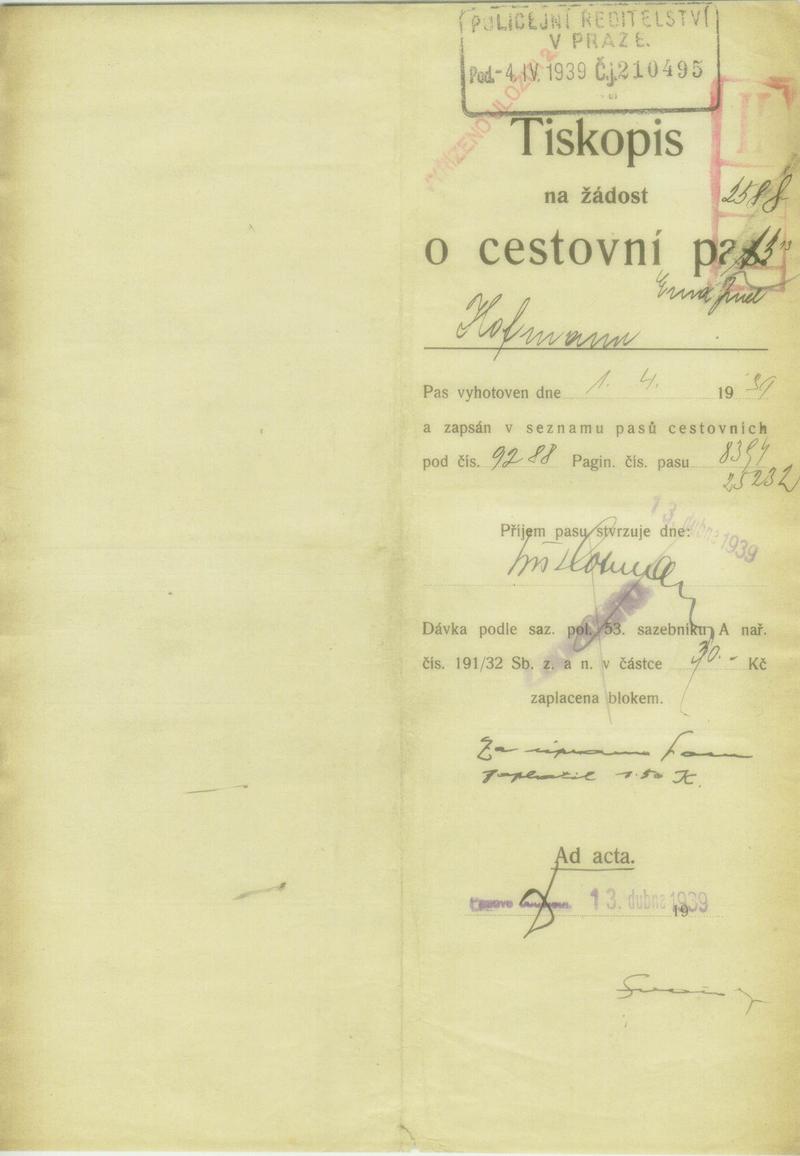 POLICEJNÍ ŘEDITELSTVÍ
V PRAZE.
Pod.-4.IV.1939 Č.j.210495
II
Tiskopis
na žádost
2588
o cestovní pas.
Hofmann
Pas vyhotoven dne 1. 4. 1939
a zapsán v seznamu pasů cestovních
pod čís. 9288 Pagin. čís. pasu 8394
25232
13. dubna 1939
Příjem pasu stvrzuje dne:
Dávka podle saz. pol. 53. sazebníku A nař.
čís. 191/32 Sb. z. a n. v částce 30.- Kč
zaplacena blokem.
Za
zaplatil 1.50 K.
Ad acta.
13. dubna 1939
19